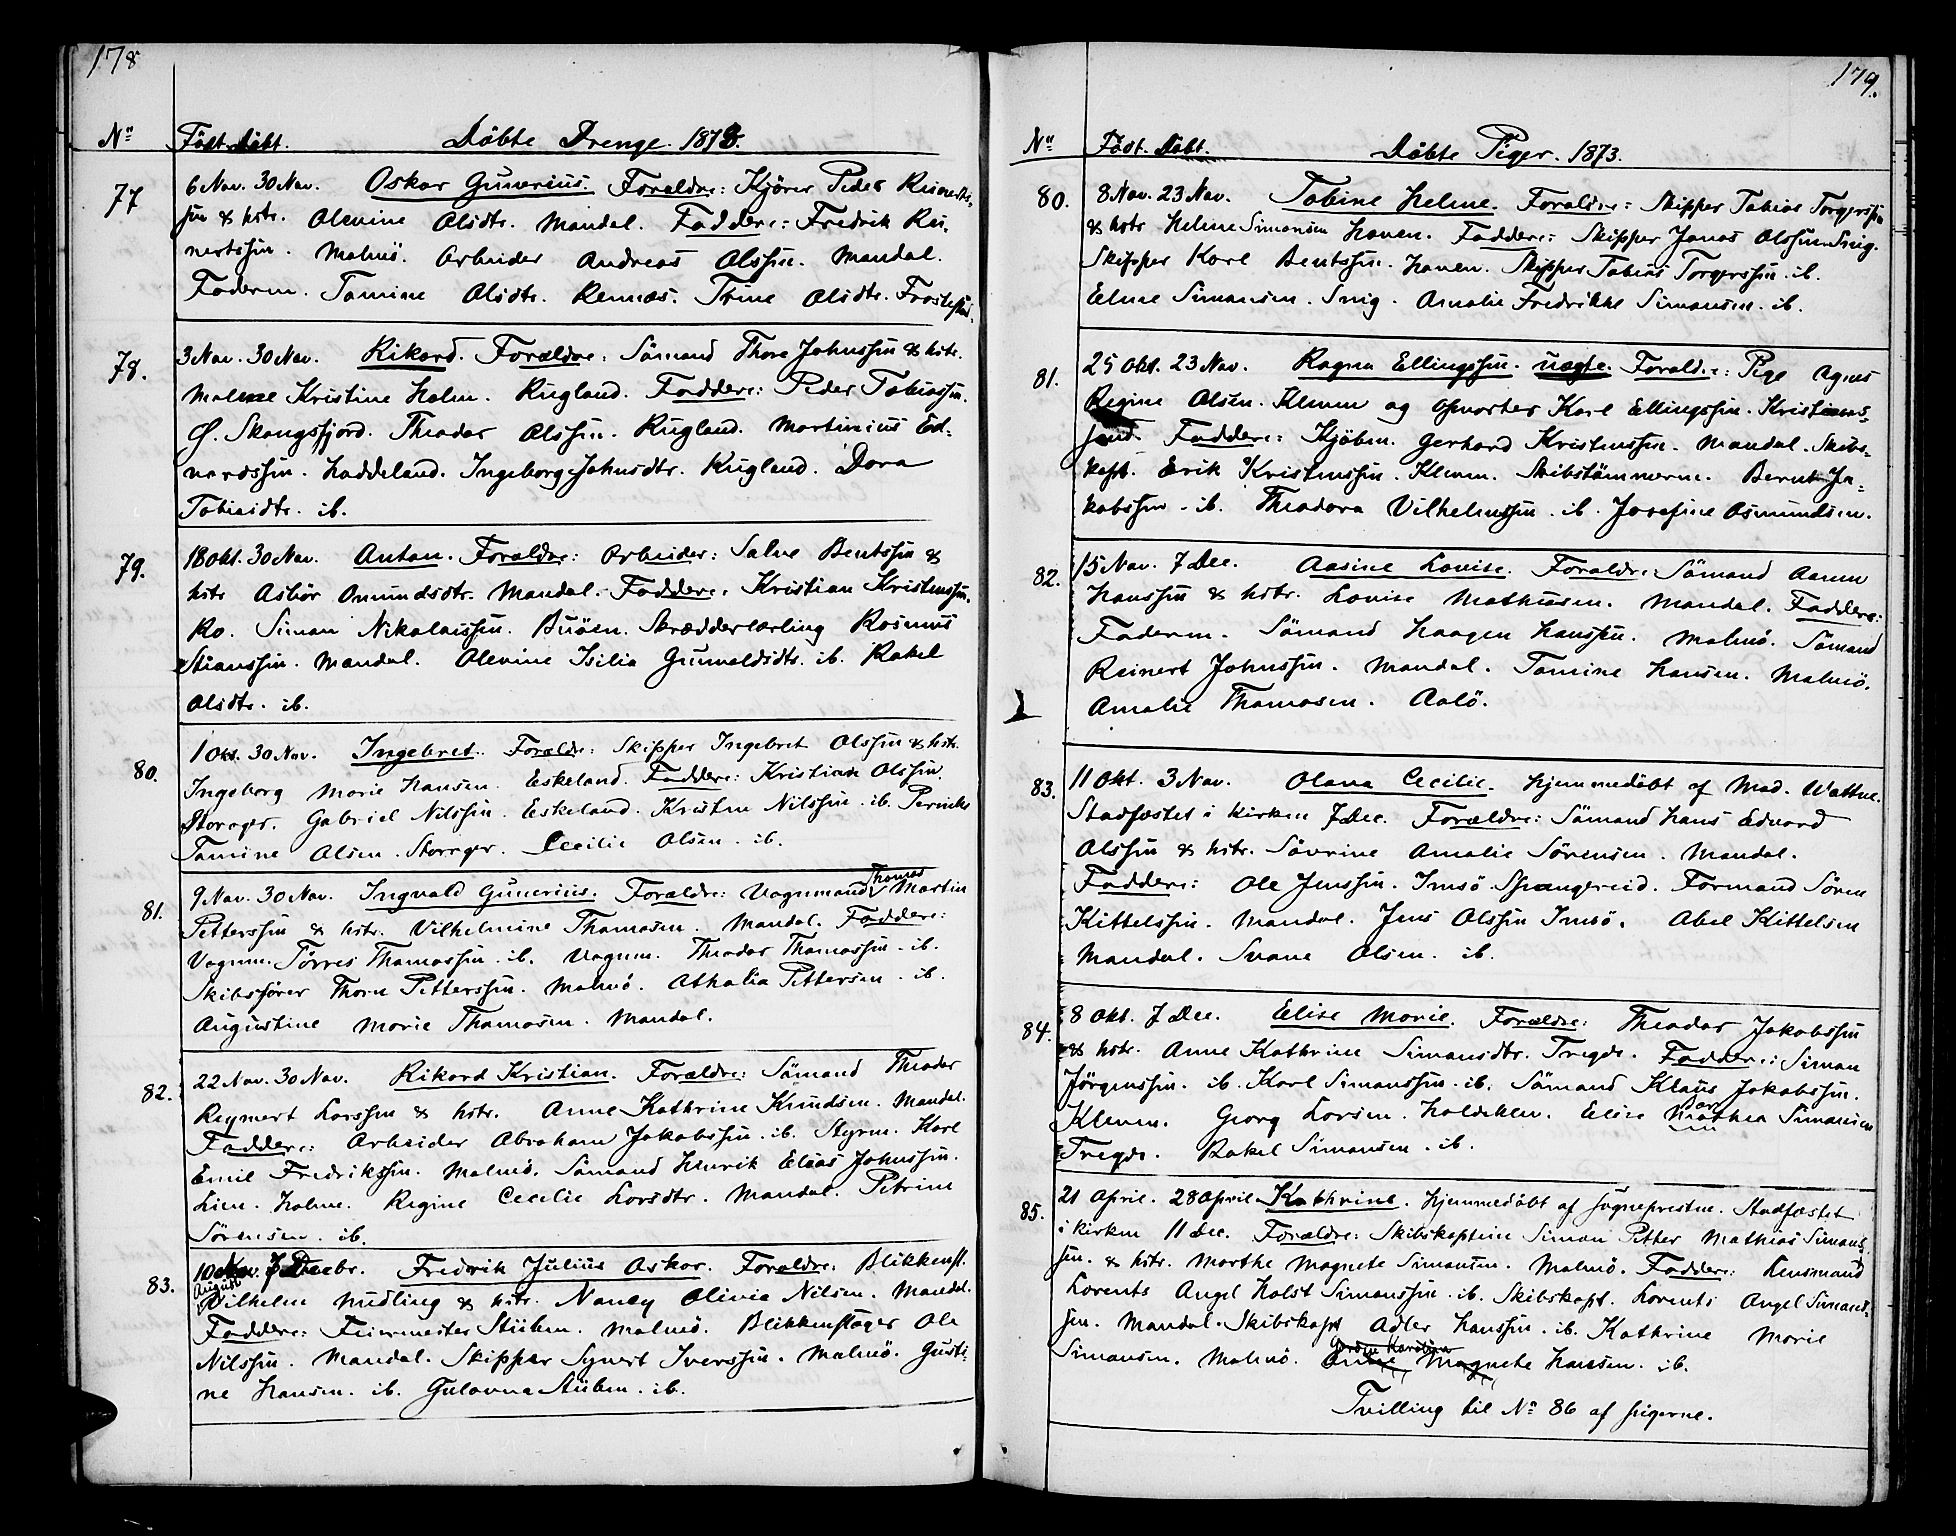 178
No Födt. Döbt. Döbte Drenge. 1873.
77 6 Nov. 30 Nov. Oskar Gunerius. Forældre: Kjörer Peder Reinerts-
sen & hstr. Olevine Olsdtr. Mandal. Faddere: Fredrik Rei-
nertssen. Malmö. Arbeider Andreas Olssen. Mandal.
Faderen. Tomine Olsdtr. Rennes. Trine Olsdtr.
78. 3 Nov. 30 Nov. Rikard. Forældre: Sömand Thore Johnssen & hstr.
Malene Kristine Holm. Rugland. Faddere: Peder Tobiassen.
Ö. Skougsfjord. Theodor Olssen. Rugland. Martinius Ed-
vardssen. Haddeland. Ingeborg Johnsdtr. Rugland. Dora
Tobiasdtr. ib.
79. 18 Okt. 30 Nov. Anton. Forældre: Arbeider: Salve Bentssen &
hstr Asbör Omundsdtr. Mandal. Faddere: Kristian Kristenssen.
Ro. Simon Nikolaissen. Buöen. Skrædderlærling Rasmus
Stianssen. Mandal. Olevine Isilia Gunvaldsdtr. ib. Rakel
Olsdtr. ib.
80. 1 Okt. 30 Nov. Ingebret. Forældre: Skipper Ingebret Olssen & hstr.
Ingeborg Marie Hansen. Eskeland. Faddere: Kristian Olssen.
Storager. Gabriel Nilssen. Eskeland. Kristen Nilssen. ib. Pernille
Tomine Olsen. Storager. Cecilie Olsen. ib.
81. 9 Nov. 30 Nov. Ingvald Gunerius. Forældre: Vognmand Thomas Martin
Petterssen & hstr. Vilhelmine Thomasen. Mandal. Faddere:
Vognm. Törres Thomassen. ib. Vognm. Theodor Thomassen. ib.
Skibsförer Thorn Petterssen. Malmö. Athalia Pettersen. ib.
Augustine Marie Thomasen. Mandal.
82. 22 Nov. 30 Nov. Rikard Kristian. Forældre: Sömand Theodor
Reynert Larssen & hstr. Anne Kathrine Knudsen. Mandal.
Faddere: Arbeider Abraham Jakobssen. ib. Styrm. Karl
Emil Fredrikssen. Malmö. Sömand Henrik Elias Johnssen.
Lien. Holme. Regine Cecilie Larsdtr. Mandal. Petrine
Sörensen. ib.
83. 10 August 7 Decbr. Fredrik Julius Oskar. Forældre: Blikkensl.
Vilhelm Nudling & hstr. Nancy Olivia Nilsen. Mandal.
Faddere: Feiermester Stüben. Malmö. Blikkenslager Ole
Nilssen. Mandal. Skipper Synert Iverssen. Malmö. Gusti-
ne Hansen. ib. Gulovna Stüben. ib.
179.
No Födt. Döbt. Döbte Piger. 1873.
80. 8 Nov. 23 Nov. Tobine Helene. Forældre: Skipper Tobias Torgerssen
& hstr Helene Simonsen Haven. Faddere: Skipper Jonas Olssen Snig.
Skipper Karl Bentssen. Haven. Skipper Tobias Torgerssen. ib.
Elene Simonsen. Snig. Amalie Fredrikke Simonsen. ib.
81. 25 Okt. 23 Nov. Ragna Ellingssen. uægte. Foræld.: Pige Agnes
Regine Olsen. Kleven og Opvarter Karl Ellingssen. Kristians-
sand. Faddere: Kjöbm. Gerhard Kristenssen. Mandal. Skibs-
kapt. Erik Kristenssen. Kleven. Skibstömmerm. Bernt Ja-
kobssen. ib. Theodora Vilhelmssen. ib. Josefine Osmundsen.
82. 15 Nov. 7 Dec. Aasine Lovise. Forældre: Sömand Aanen
Hanssen & hstr. Lovise Mathiasen. Mandal. Faddere:
Faderen. Sömand Haagen Hanssen. Malmö. Sömand
Reinert Johnssen. Mandal. Tomine Hansen. Malmö.
Amalie Thomasen. Aalö.
83. 11 Okt. 3 Nov. Olava Cecilie. Hjemmedöbt af Mad. Wattne.
Stadfæstet i Kirken 7 Dec. Forældre: Sömand Hans Edvard
Olssen & hstr. Sövrine Amalie Sörensen. Mandal.
Faddere: Ole Jenssen. Imsö Spangereid. Formand Sören
Kittelssen. Mandal. Jens Olssen Imsö. Abel Kittelsen
Mandal. Svane Olsen. ib.
84. 8 Okt. 7 Dec. Elise Marie. Forældre: Theodor Jakobssen
& hstr. Anne Kathrine Simonsdtr. Tregde. Faddere: Simon
Jörgenssen. ib. Karl Simonssen. ib. Sömand Klaus Jakobssen.
Kleven. Georg Larsen. Elise Mathea Simonsen
Tregde. Rakel Simonsen. ib.
85. 21 April. 28 April. Kathrine. Hjemmedöbt af Sognepresten. Stadfæstet
i Kirken 11 Dec. Forældre: Skibskaptein Simon Petter Mathias Simons-
sen. & hstr. Marthe Magnete Simonsen. Malmö. Faddere: Lensmand
Lorents Angel Holst Simonssen. ib. Skibskapt. Lorents Angel Simons-
sen. Mandal. Skibskapt Adler Hanssen. ib. Kathrine Marie
Simonsen. Malmö. Anne Magnete Hansen. ib.
Tvilling til No 86 af pigerne.